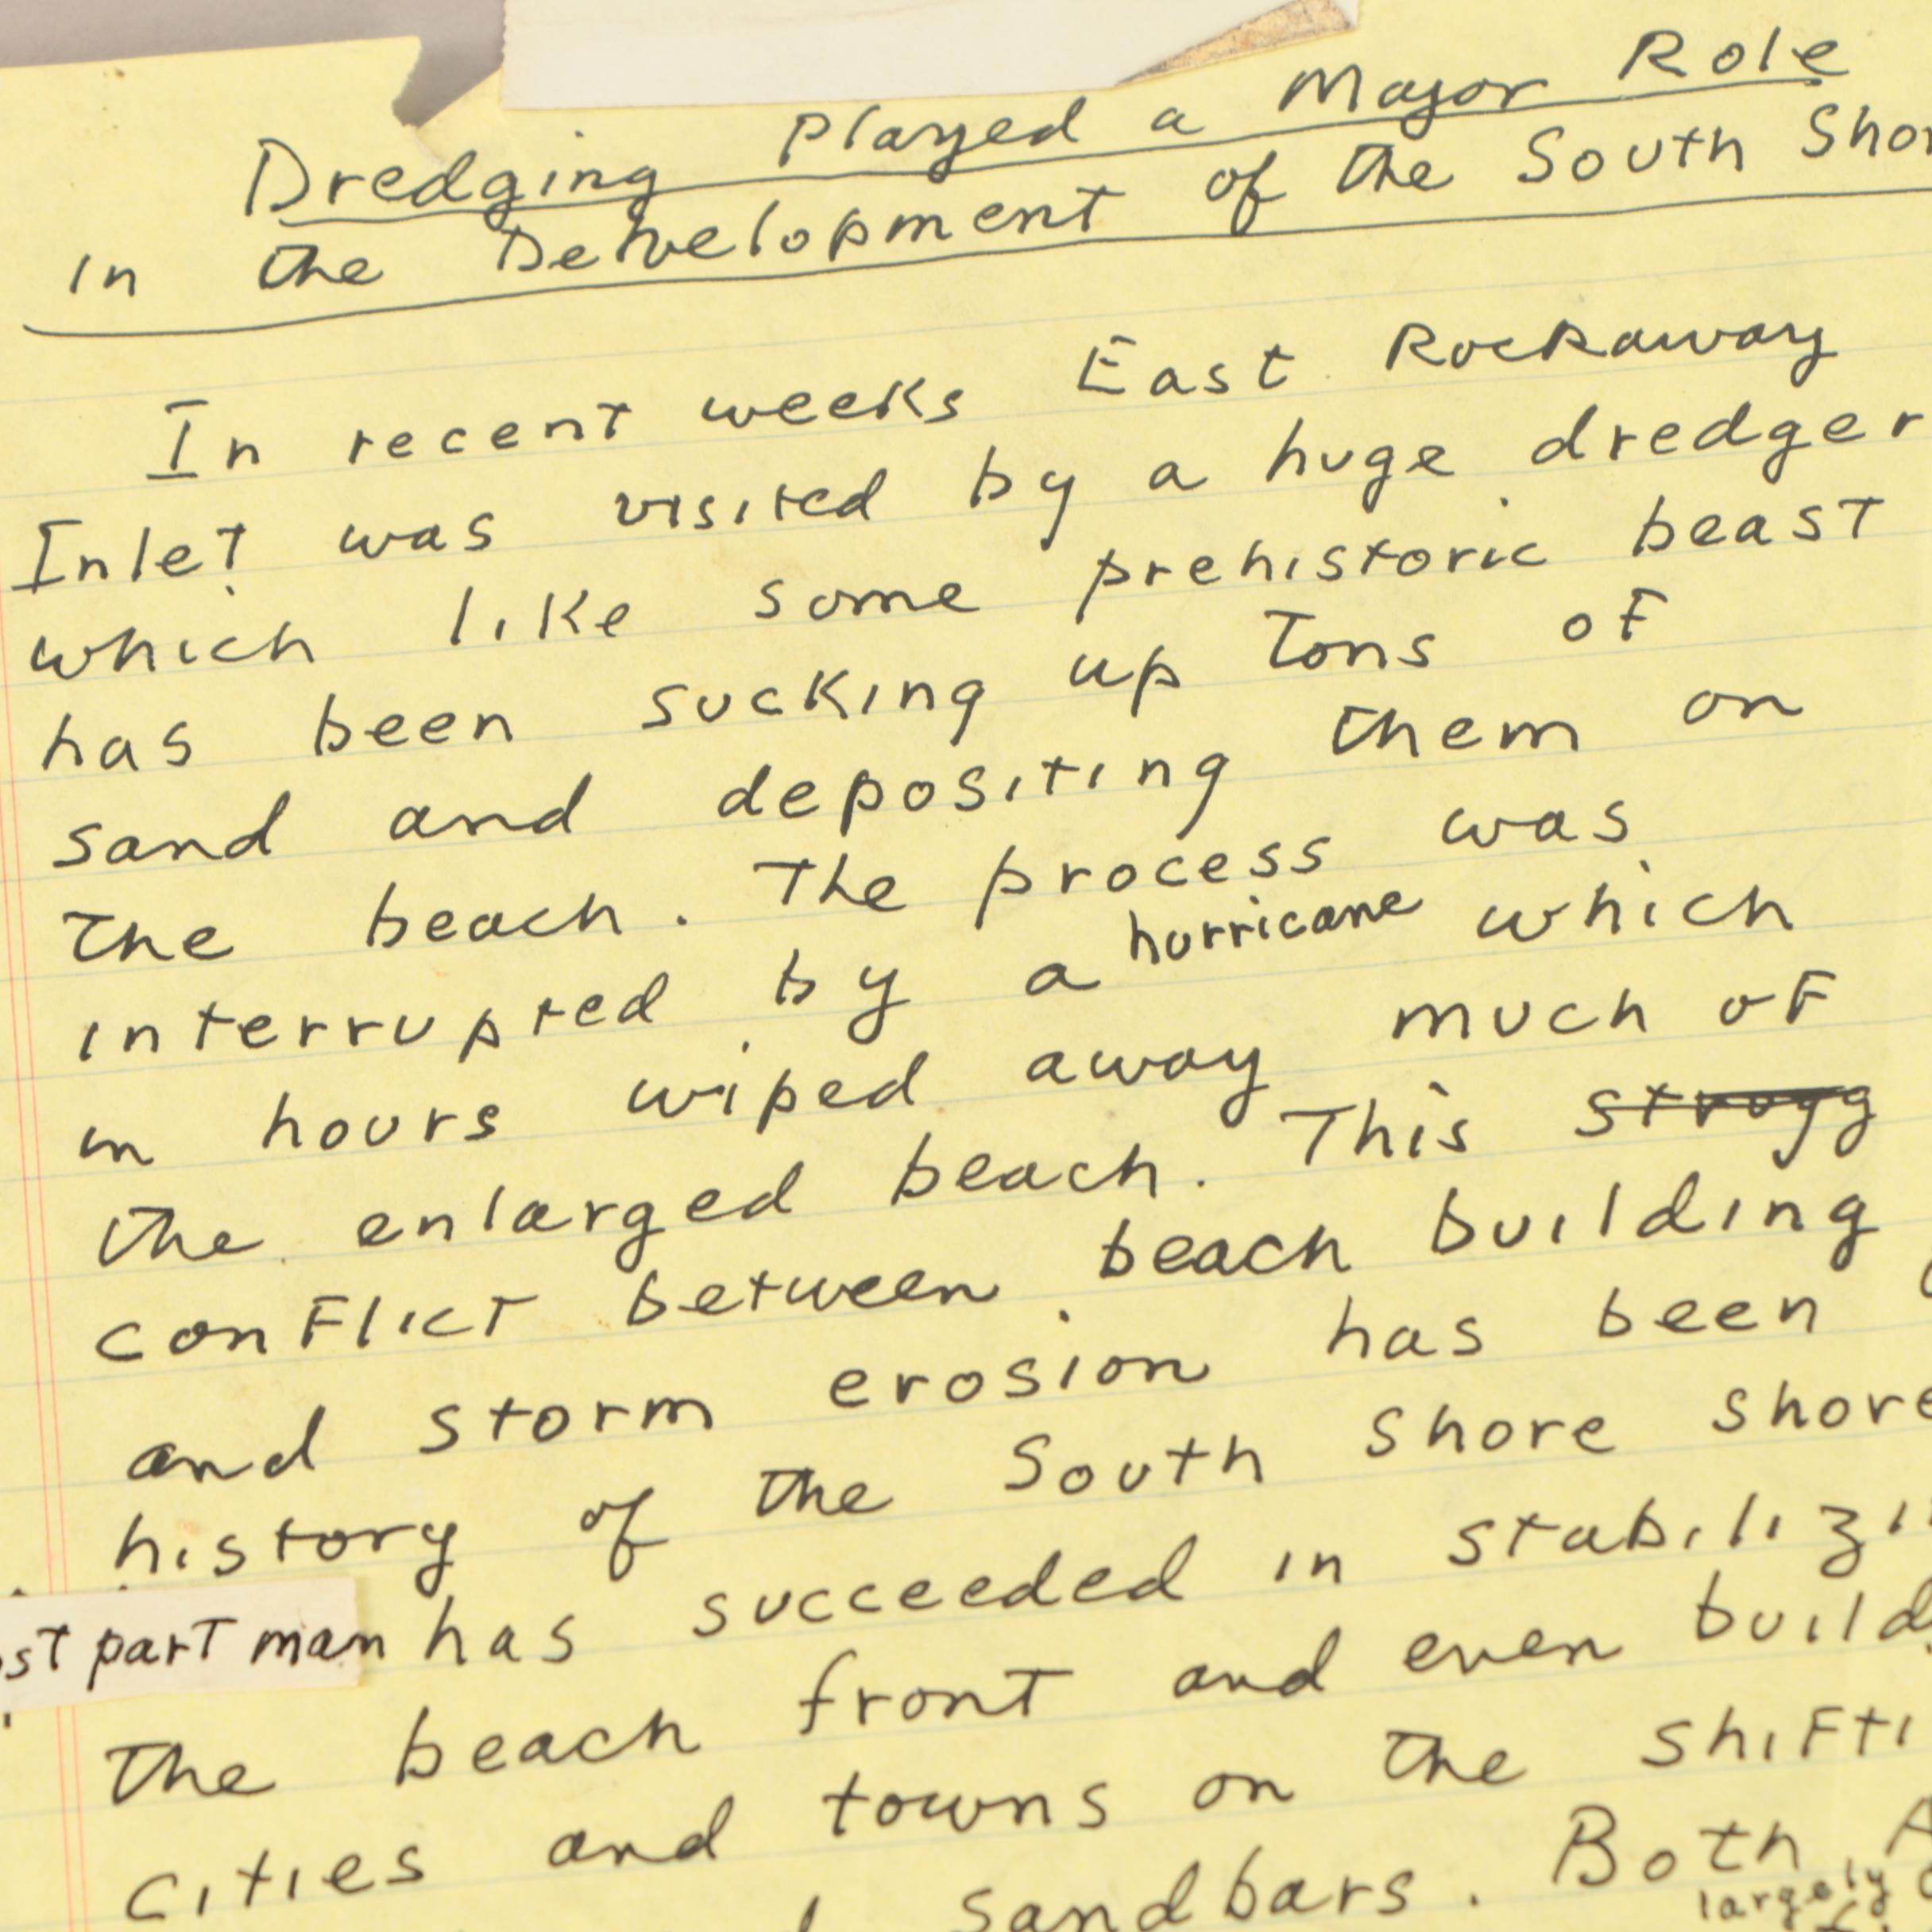 Dredging Played a Major Role
in the Development of the South Shor
In recent weeks East Rockaway
Inlet was visited by a huge dredger
which like some prehistoric beast
has been sucking up tons of
sand and depositing them on
the beach. The process was
interrupted by a hurricane which
in hours wiped away much of
the enlarged beach. This strugg
conflict between beach building
and storm erosion has been
history of the South Shore shore
st part man has succeeded in stabilizi
the beach front and even build
cities and towns on the shifti
sandbars. Both
largely